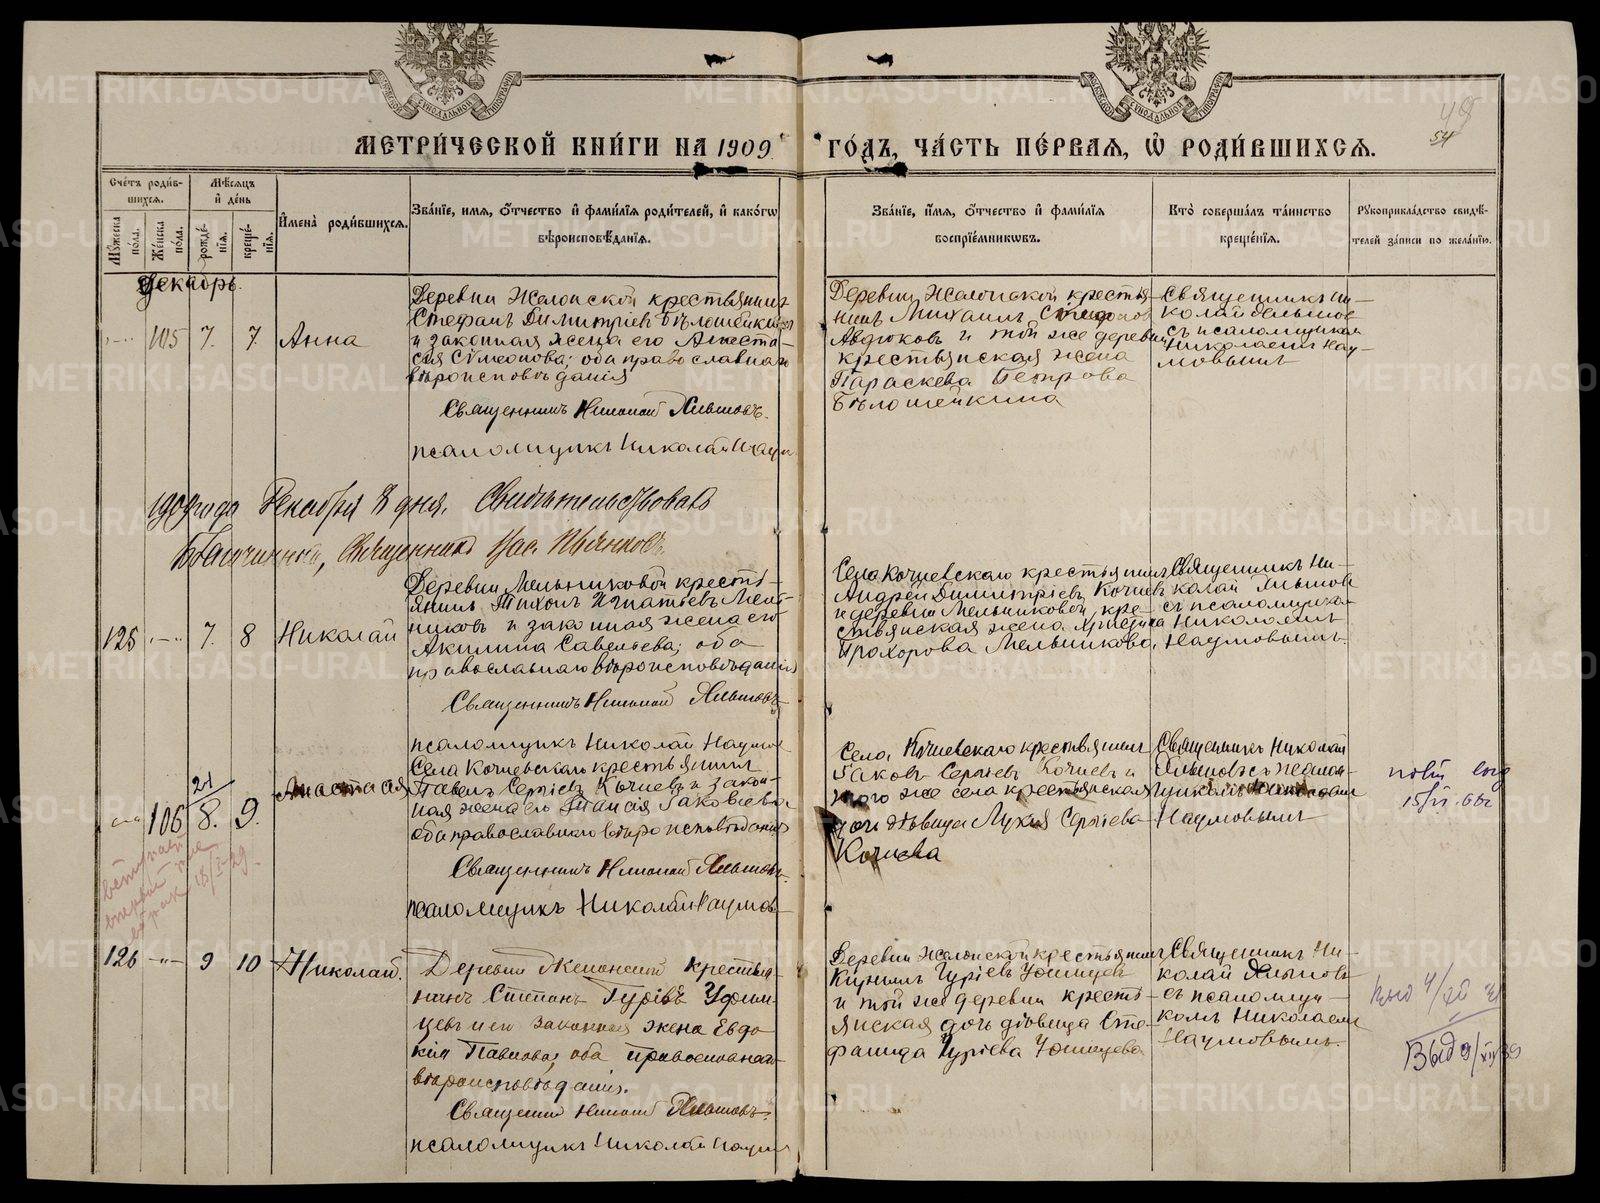 METRIKI.GASO-URAL.RU
МЕТРИ́ЧЕСКОЙ КНИ́ГИ НА 1909 ГО́ДЪ, ЧА́СТЬ ПЕ́РВАЯ, Ѡ҆ РОДИ́ВШИХСѦ.
54
Сче́тъ роди́в-
шихсѧ.
Мꙋ́жеска по́ла.
Же́нска по́ла.
Мѣ́сѧцъ
и҆ де́нь
рожде́-
нїѧ.
креще́-
нїѧ.
И҆мена̀ роди́вшихсѧ.
Зва́нїе, и҆мѧ, о҆́тчество и҆ фами́лїѧ роди́телей, и҆ како́гѡ
вѣроисповѣ́данїѧ.
Зва́нїе, и҆́мѧ, о҆́тчество и҆ фами́лїѧ
воспрїе́мникѡвъ.
Кто̀ соверша́лъ та́инство
креще́нїѧ.
Рꙋкоприкла́дство свидѣ́-
телей за́писи по жела́нїю.
Декабрь.
105 7. 7. Анна
Деревни крестьянинъ
Стефанъ Димитріевъ Бѣлошейкинъ
и законная жена его Анаста-
сія Симеонова; оба православнаго
вѣроисповѣданія
Священникъ Николай
псаломщикъ Николай Наум
Деревни крестья-
нинъ Михаилъ
Авдюковъ и той же деревни
крестьянская жена
Параскева Петрова
Бѣлошейкина
Священникъ Ни-
колай
съ псаломщикомъ
Николаемъ Нау-
мовымъ
1909 года Декабря 8 дня. Свидѣтельствовалъ
Благочинный, Священникъ
125 7. 8 Николай
Деревни Мельниковой кресть-
янинъ Тихонъ Игнатьевъ Мель-
никовъ и законная жена его
Акилина Савельева; оба
православнаго вѣроисповѣданія
Священникъ Николай
псаломщикъ Николай Наумов
Села Кочневскаго крестьянинъ
Андрей Димитріевъ Кочневъ
и деревни Мельниковой, кре-
стьянская жена
Прохорова Мельникова,
Священникъ Ни-
колай
съ псаломщиком
Николаемъ
Наумовымъ
106 21/8. 9. Анастасія
Села Кочневскаго крестьянинъ
Павелъ Сергіевъ Кочневъ и закон-
ная жена его Таисія Іаковлева
оба православнаго вѣроисповѣданія
Священникъ Николай
псаломщикъ Николай Наумов
Села Кочневскаго крестьянинъ
Іаковъ Сергіевъ Кочневъ и
того же села крестьянская
дочь дѣвица Лукія Сергіева
Кочнева
Священникъ Николай
съ псалом-
щикомъ Николаемъ
Наумовымъ
вступает
первый
брак 18/I-29.
126 9 10 Николай.
Деревни крестья-
нинъ Степанъ Гурьевъ Уфим-
цевъ и его законная жена Евдо-
кія Павлова, оба православнаго
вѣроисповѣданія.
Священникъ Николай
псаломщикъ Николай Наумов
Деревни крестьянинъ
Кириллъ Гуріевъ Уфимцевъ
и той же деревни кресть-
янская дочь дѣвица Сте-
фанида Гуріева Уфимцева
Священникъ Ни-
колай
съ псаломщи-
комъ Николаемъ
Наумовымъ.